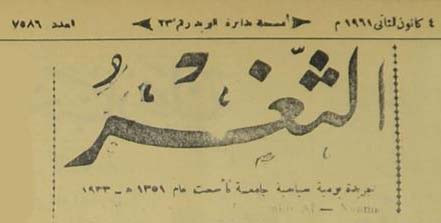 ٤ كانون الثاني ١٩٦١ م أسست بدائرة البريد رقم ٢٣ العدد ٧٥٨٦
الثغر
جريدة يومية سياسية جامعية تأسست عام ١٣٥١ هـ - ١٩٣٣